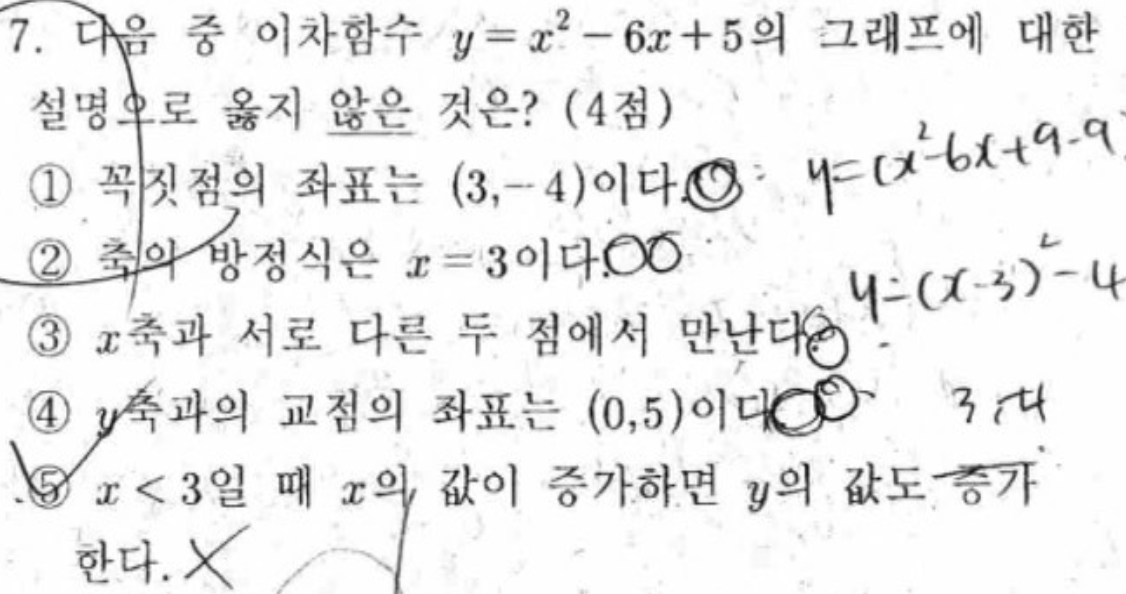 7. 다음 중 이차함수 y=x²-6x+5의 그래프에 대한
설명으로 옳지 않은 것은? (4점)
① 꼭짓점의 좌표는 (3,-4)이다.
y=(x²-6x+9-9
② 축의 방정식은 x=3이다.
y=(x-3)²-4
③ x축과 서로 다른 두 점에서 만난다.
④ y축과의 교점의 좌표는 (0,5)이다.
3,-4
⑤ x<3일 때 x의 값이 증가하면 y의 값도 증가
한다.